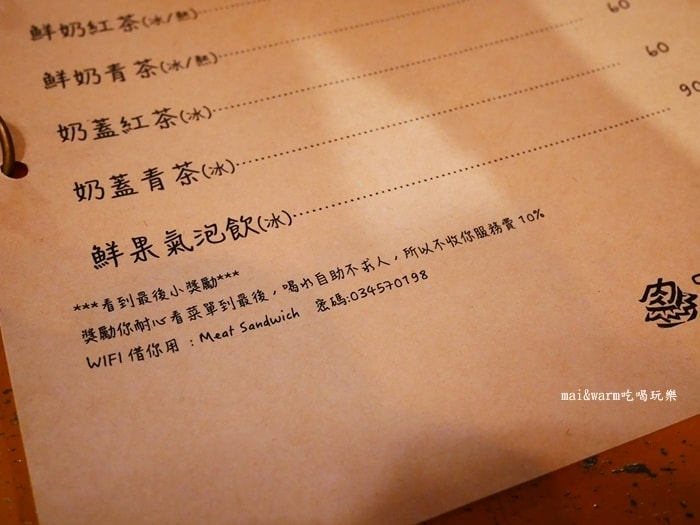 鮮奶紅茶(冰/熱)
鮮奶青茶(冰/熱)
奶蓋紅茶(冰) 60
奶蓋青茶(冰) 60
鮮果氣泡飲(冰) 90
***看到最後小獎勵***
獎勵你耐心看菜單到最後，喝水自助不求人，所以不收你服務費10%
WIFI 借你用 : Meat Sandwich 密碼:034570198
肉
mai&warm吃喝玩樂